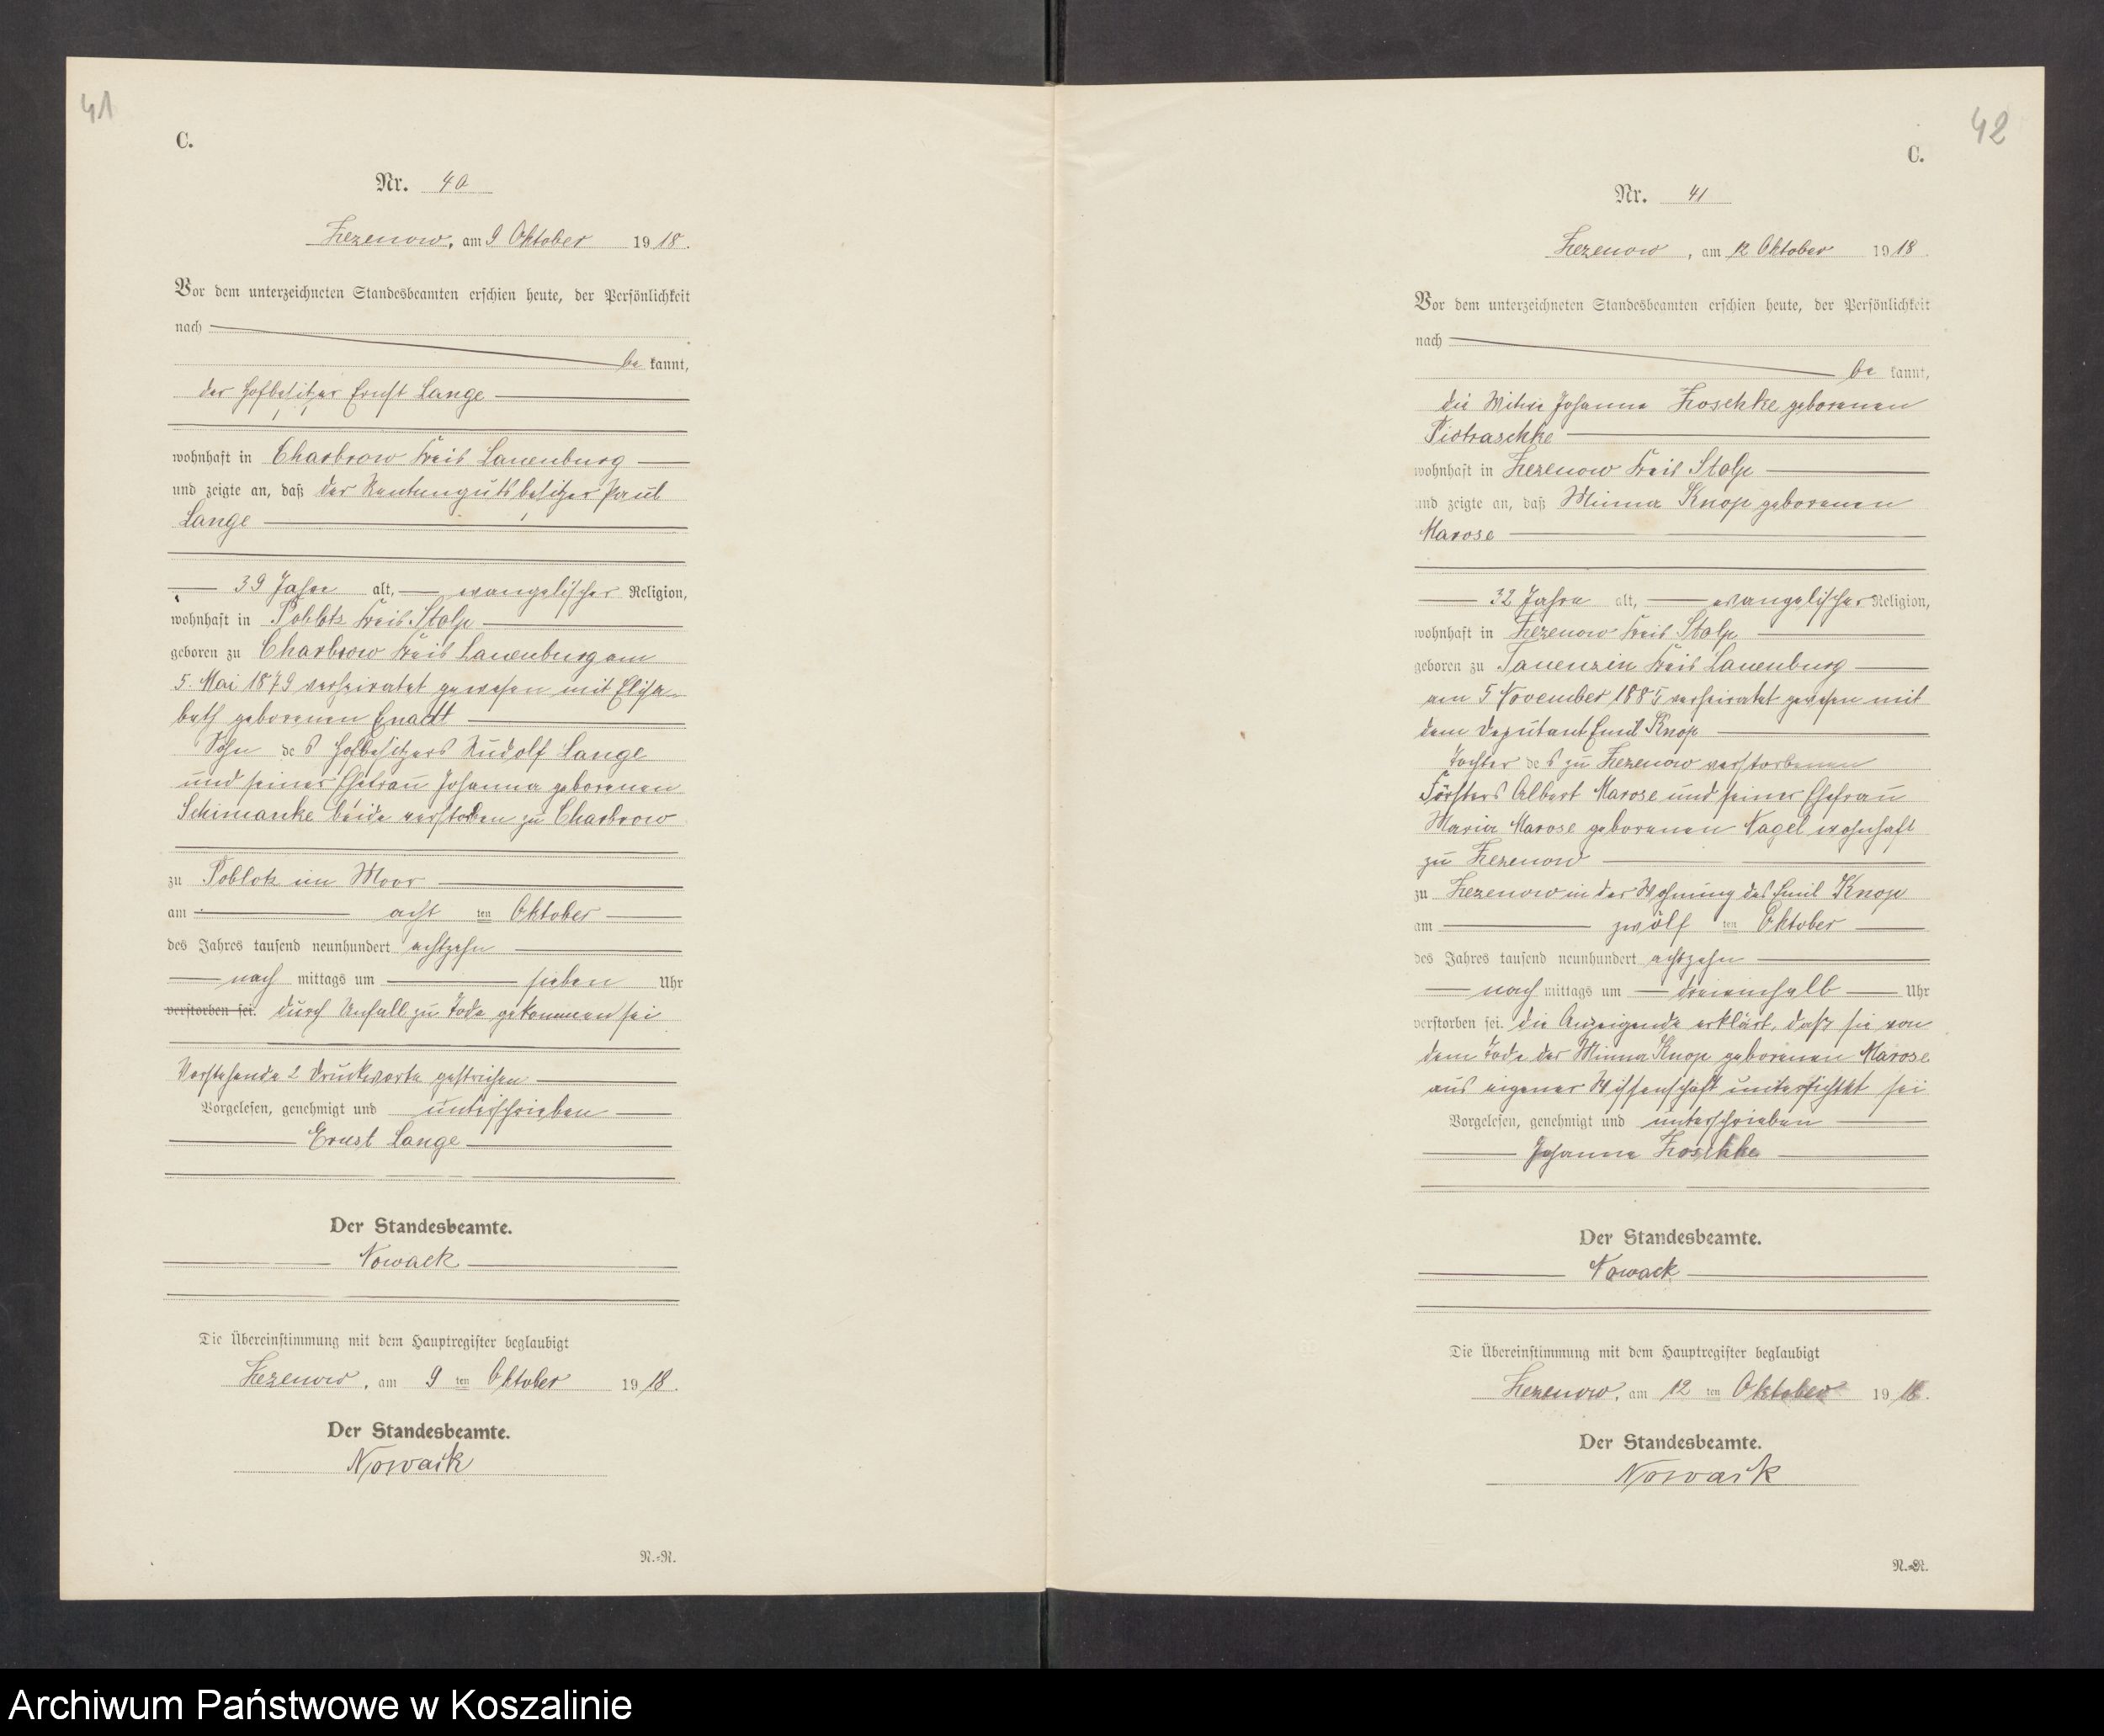 41
C.
Nr. 40
Zezenow, am 9 Oktober 1918.
Vor dem unterzeichneten Standesbeamten erschien heute, der Persönlichkeit
nach
be kannt,
der Hofbesitzer Ernst Lange
wohnhaft in Charbrow Kreis Lauenburg
und zeigte an, daß der Rentengutsbesitzer Paul
Lange
39 Jahre alt, evangelischer Religion,
wohnhaft in Poblotz Kreis Stolp
geboren zu Charbrow Kreis Lauenburg am
5. Mai 1879 verheiratet gewesen mit Elisa-
beth geborenen
Sohn des Hofbesitzers Rudolf Lange
und seiner Ehefrau Johanna geborenen
Schimanke beide verstorben zu Charbrow
zu Poblotz im Moor
am acht ten Oktober
des Jahres tausend neunhundert achtzehn
nach mittags um sieben Uhr
verstorben sei. durch Unfall zu Tode gekommen sei
Vorstehende 2 Druckworte gestrichen
Vorgelesen, genehmigt und unterschrieben
Ernst Lange
Der Standesbeamte.
Nowack
Die Übereinstimmung mit dem Hauptregister beglaubigt
Zezenow, am 9 ten Oktober 1918.
Der Standesbeamte.
Nowack
N.-R.
42
C.
Nr. 41
Zezenow, am 12 Oktober 1918.
Vor dem unterzeichneten Standesbeamten erschien heute, der Persönlichkeit
nach
be kannt,
die Witwe Johanna Zoschke geborenen
Piotraschke
wohnhaft in Zezenow Kreis Stolp
und zeigte an, daß Minna Knop geborenen
Marose
32 Jahre alt, evangelischer Religion,
wohnhaft in Zezenow Kreis Stolp
geboren zu Tauenzin Kreis Lauenburg
am 5 November 1885 verheiratet gewesen mit
dem Deputant Emil Knop
Tochter des zu Zezenow verstorbenen
Försters Albert Marose und seiner Ehefrau
Maria Marose geborenen Nagel wohnhaft
zu Zezenow
zu Zezenow in der Wohnung des Emil Knop
am zwölf ten Oktober
des Jahres tausend neunhundert achtzehn
nach mittags um dreieinhalb Uhr
verstorben sei. die Anzeigende erklärt, daß sie von
dem Tode der Minna Knop geborenen Marose
aus eigener Wissenschaft unterrichtet sei
Vorgelesen, genehmigt und unterschrieben
Johanna Zoschke
Der Standesbeamte.
Nowack
Die Übereinstimmung mit dem Hauptregister beglaubigt
Zezenow, am 12 ten Oktober 1918.
Der Standesbeamte.
Nowack
N.-R.
Archiwum Państwowe w Koszalinie